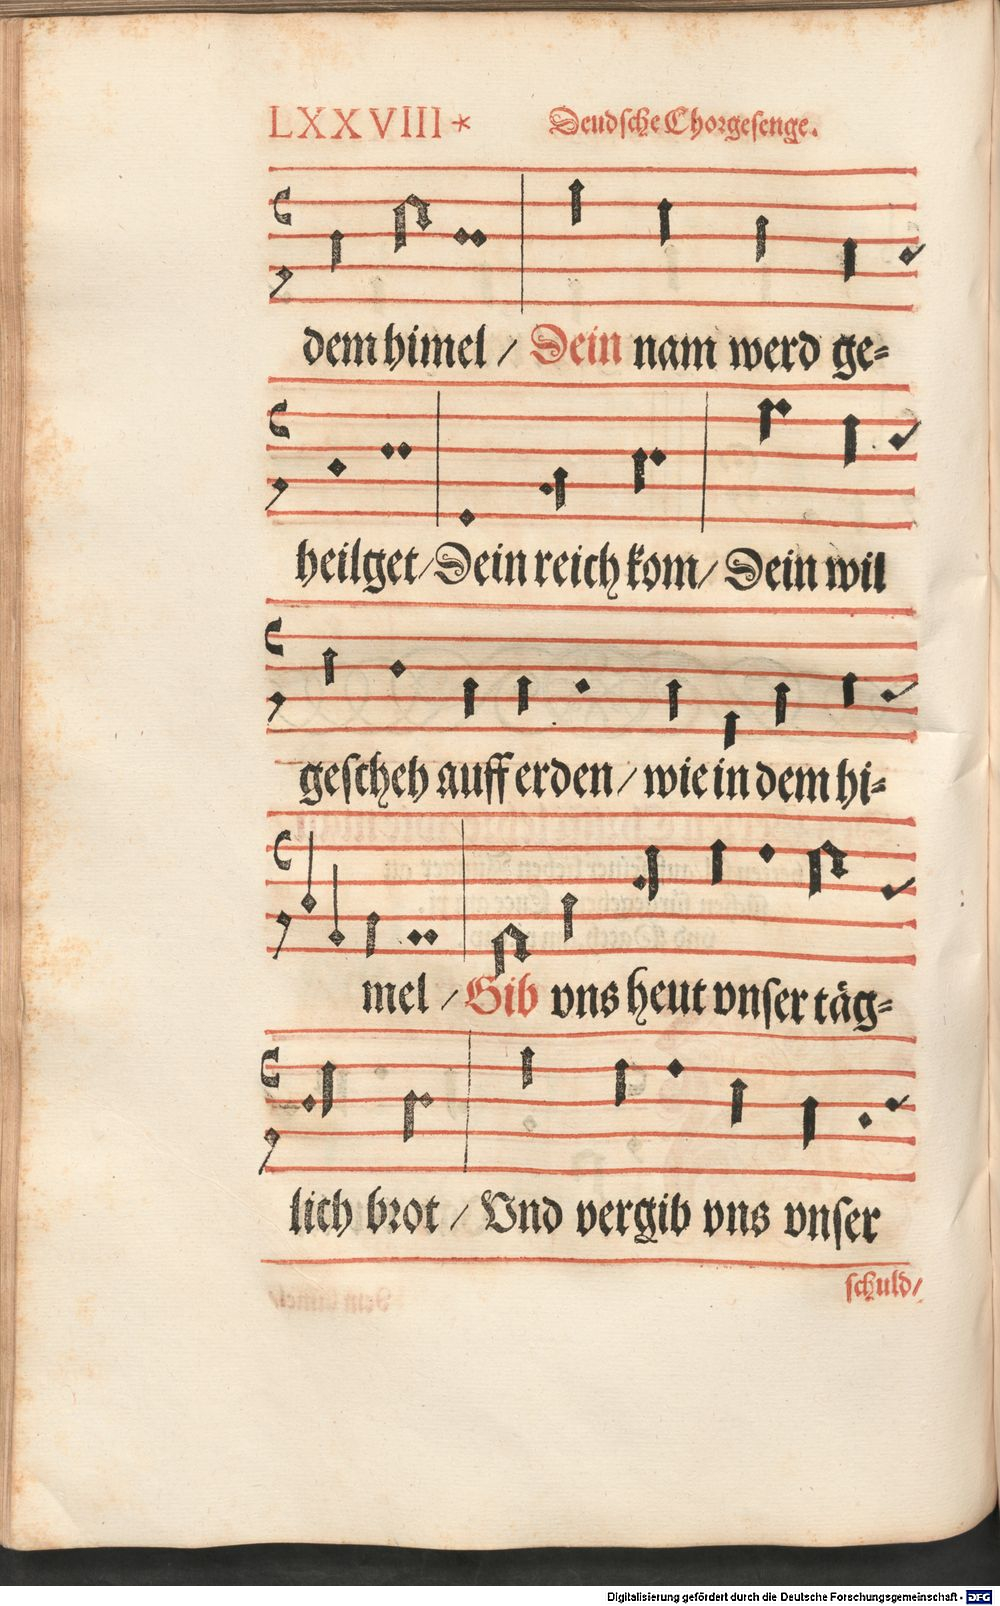 LXXVIII * Deudſche Chorgeſenge.
dem himel / Dein nam werd ge=
heilget/ Dein reich kom/ Dein wil
geſcheh auff erden / wie in dem hi=
mel / Gib vns heut vnſer täg=
lich brot / Vnd vergib vns vnſer
ſchuld/
Digitalisierung gefördert durch die Deutsche Forschungsgemeinschaft - DFG